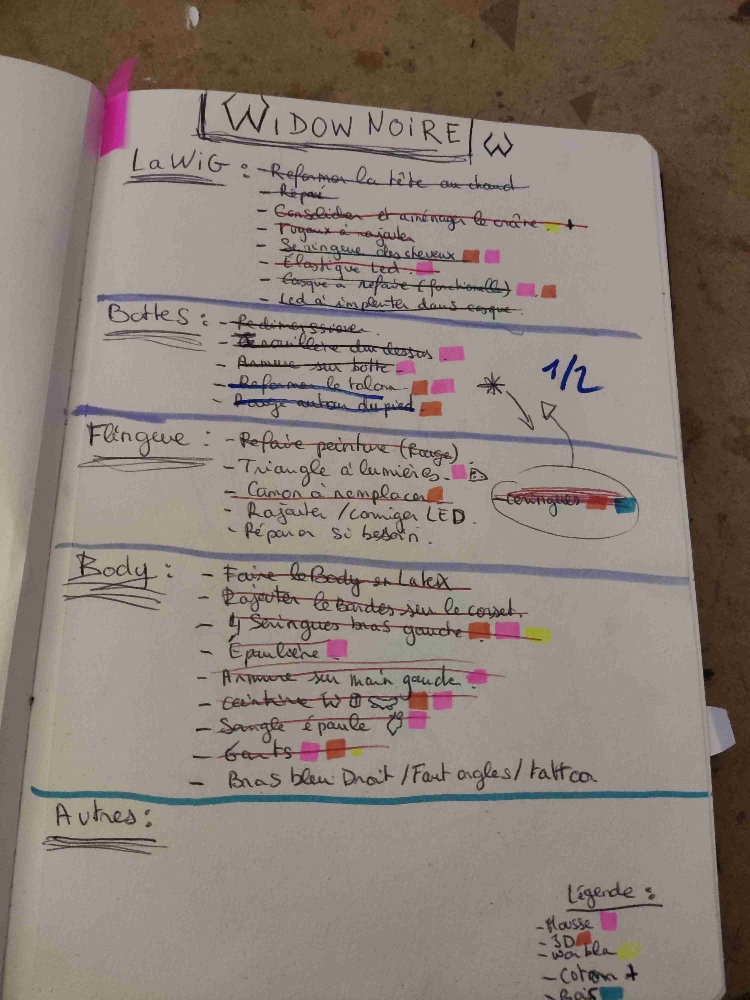 WIDOW NOIRE W
La WIG : - Reformer la tête au chaud
- Réparé
- Consolider et aménager le crâne +
- Tuyaux à rajouter
- Seringue des cheveux
- Élastique Led.
- Casque à refaire (fonctionelle)
- Led à implenter dans casque.
Bottes : - Redimessioner.
- Genouillère du dessus
- Armure sur botte
- Reformer le talon
- Rouge autour du pied
1/2
Flingue : - Refaire peinture (Rouge)
- Triangle à lumières.
- Canon à remplacer
- Rajouter / corriger LED.
- Réparer si besoin.
Ceringues
Body : - Faire le Body en Latex
- Rajouter le bandes sur le corset.
- 4 Seringues bras gauche
- Épaulière
- Armure sur main gauche
- Ceinture W
- Sangle épaule
- Gants
- Bras bleu Droit / Faut ongles / tattoo
Autres :
Légende :
- Mousse
- 3D
- worbla
- Coton +
- Bois